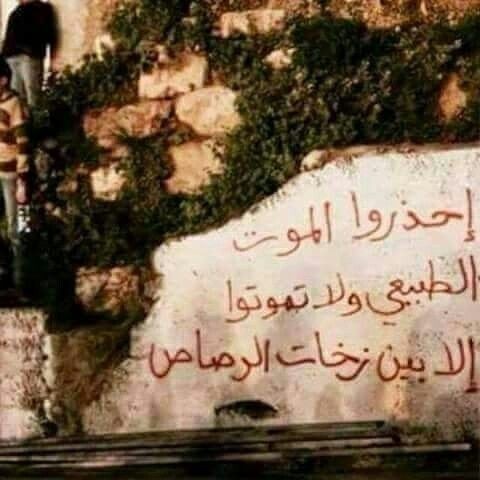 إحذروا الموت
الطبيعي ولا تموتوا
إلا بين زخات الرصاص